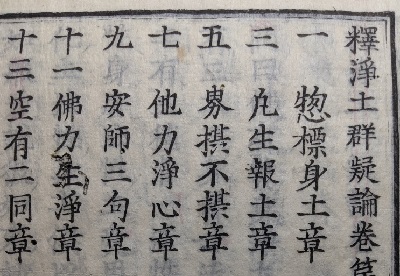 釋淨土群疑論卷
一 惣標身土章
三 凡生報土章
五 界摂不摂章
七 他力淨心章
九 安師三句章
十一佛力生淨章
十三空有二同章